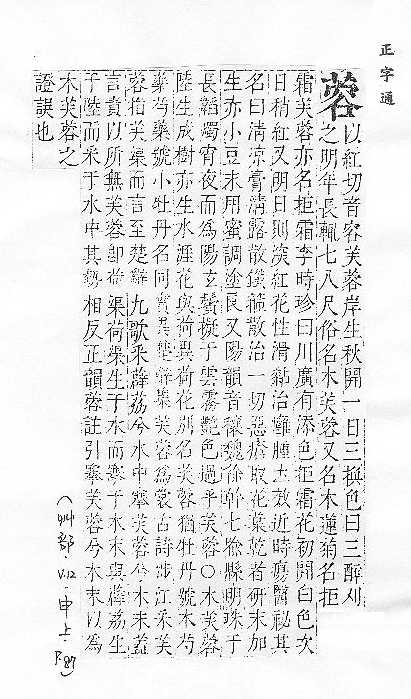 正字通
蓉
以紅切音容芙蓉岸生秋開一日三換色曰三醉刈
之明年長輒七八尺俗名木芙蓉又名木蓮菊名拒
霜芙蓉亦名拒霜李時珍曰川廣有添色拒霜花初開白色次
日稍紅又明日則深紅花性滑黏治癰腫大效近時瘍醫祕其
名曰清涼膏清露散鐵箍散治一切惡瘡取花葉乾者研末加
生赤小豆末用蜜調塗良又陽韻音穰魏徐幹七喩縣明珠于
長韜燭宵夜而為陽玄鬢擬于雲霧艷色過乎芙蓉○木芙蓉
陸生成樹亦生水涯花與荷異荷花別名芙蓉猶牡丹號木芍
藥芍藥號小牡丹名同實異楚辭集芙蓉為裳古詩涉江采芙
蓉指芙蕖而言至楚辭九歌采薜荔兮水中搴芙蓉兮木末蓋
言責以所無芙蓉卽荷渠荷渠生于水而搴于木末與薜荔生
于陸而采于水中其勢相反正韻蓉註引搴芙蓉兮木末以為
木芙蓉之
證誤也
(艸部·V.12·申上·P.87)